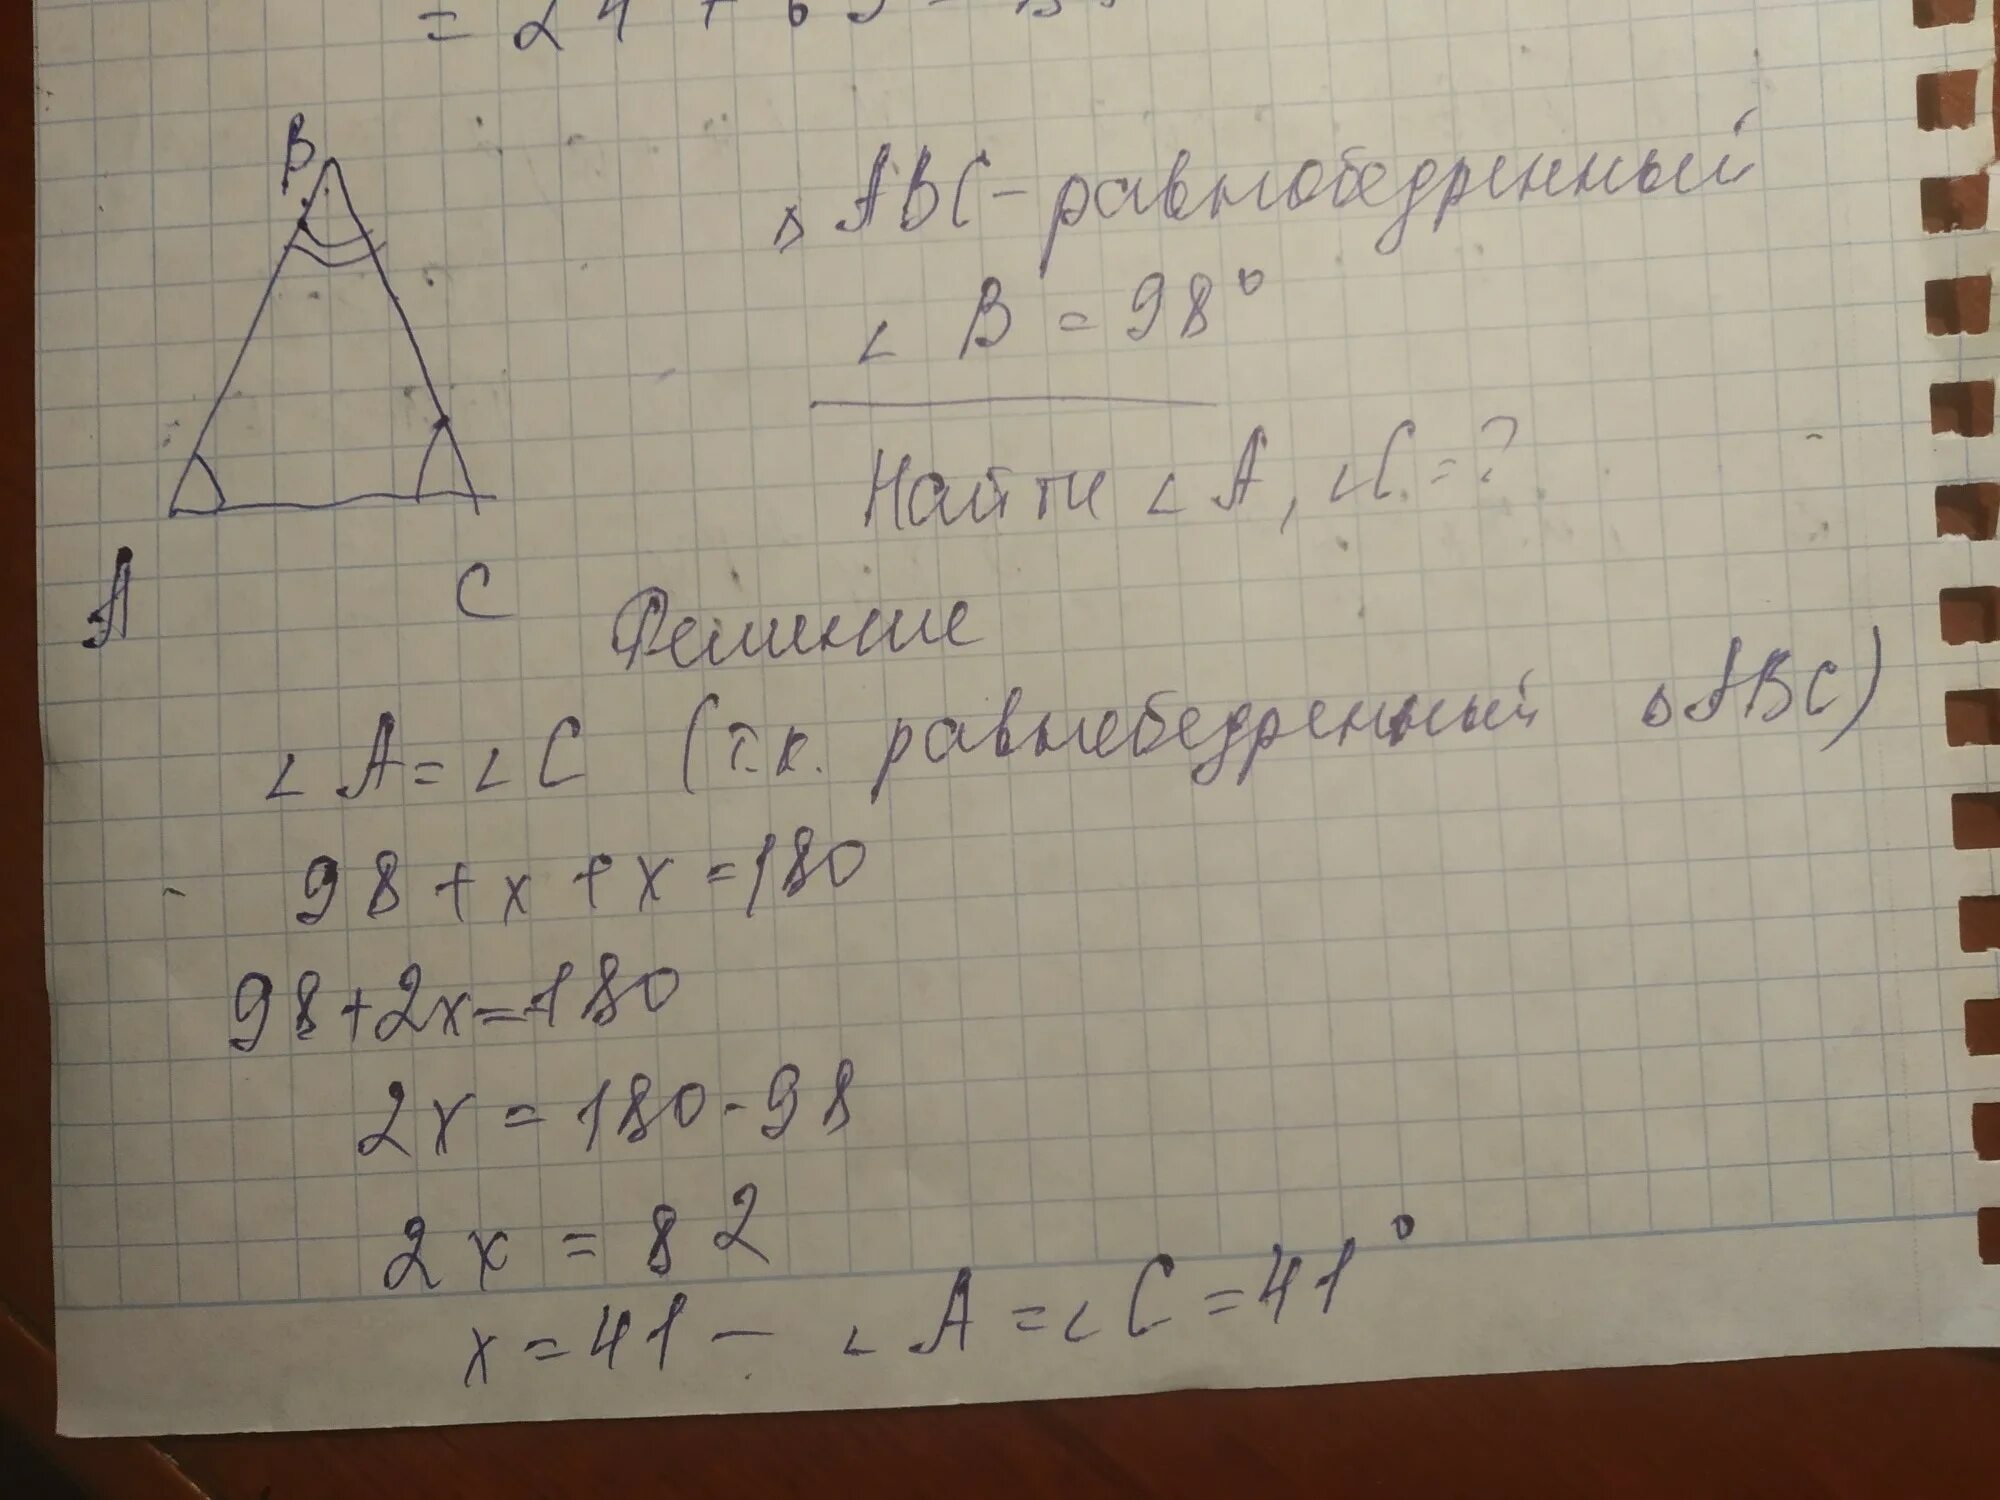 B
△ABC - равнобедренный
∠ B = 98°
Найти ∠ A, ∠C = ?
A
C
Решение
∠ A = ∠ C (т.к. равнобедренный △ABC)
98 + x + x = 180
98 + 2x = 180
2x = 180 - 98
2x = 82
x = 41 — ∠ A = ∠ C = 41°